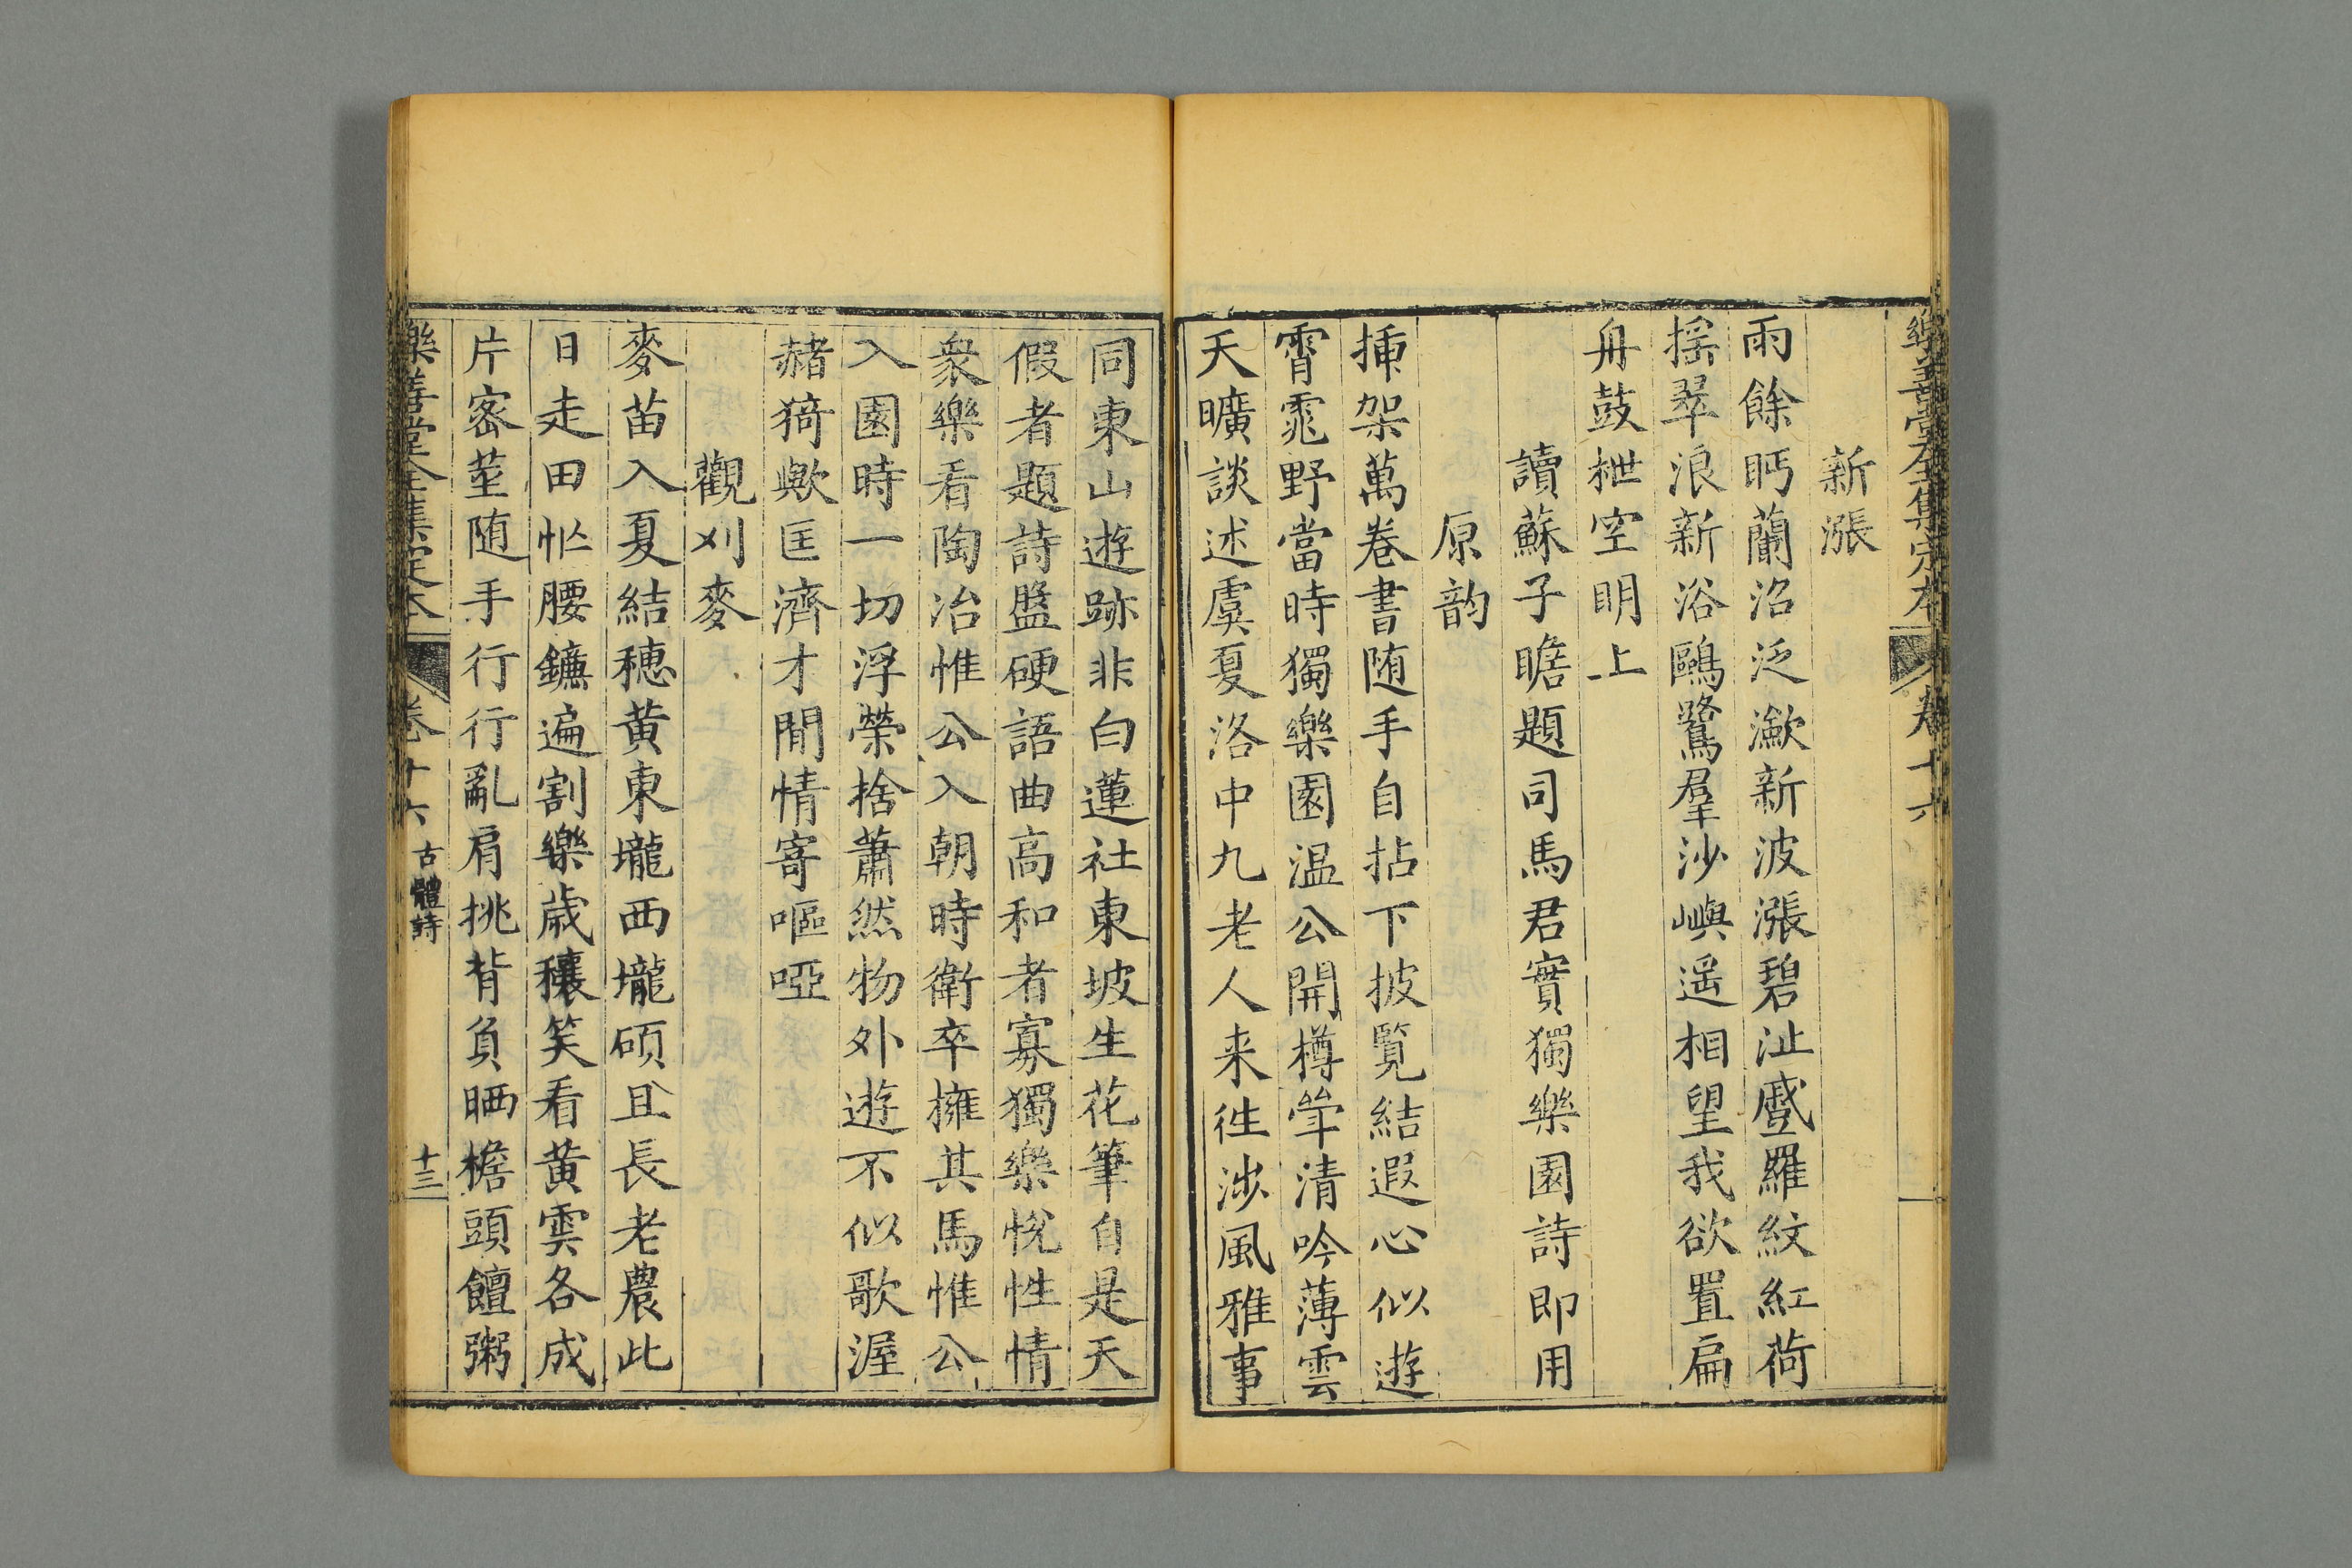 樂善堂全集定本 卷十六
新漲
雨餘眄蘭沼泛瀲新波漲碧沚蹙羅紋紅荷
搖翠浪新浴鷗鷺羣沙嶼遥相望我欲置扁
舟鼓枻空明上
讀蘇子瞻題司馬君實獨樂園詩即用
原韵
挿架萬卷書随手自拈下披覧結遐心似遊
霄霏野當時獨樂園温公開樽斝清吟薄雲
天曠談述虞夏洛中九老人来徃涉風雅事
同東山遊跡非白蓮社東坡生花筆自是天
假者題詩盤硬語曲高和者寡獨樂恱性情
衆樂看陶冶惟公入朝時衛卒擁其馬惟公
入園時一切浮榮捨蕭然物外遊不似歌渥
赭猗歟匡濟才閒情寄嘔啞
觀刈麥
麥苗入夏結穂黄東壠西壠碩且長老農此
日走田忙腰鐮遍割樂歲穰笑看黄雲各成
片密莖随手行行亂肩挑背負晒檐頭饘粥
樂善堂全集定本 卷十六 古體詩 十三